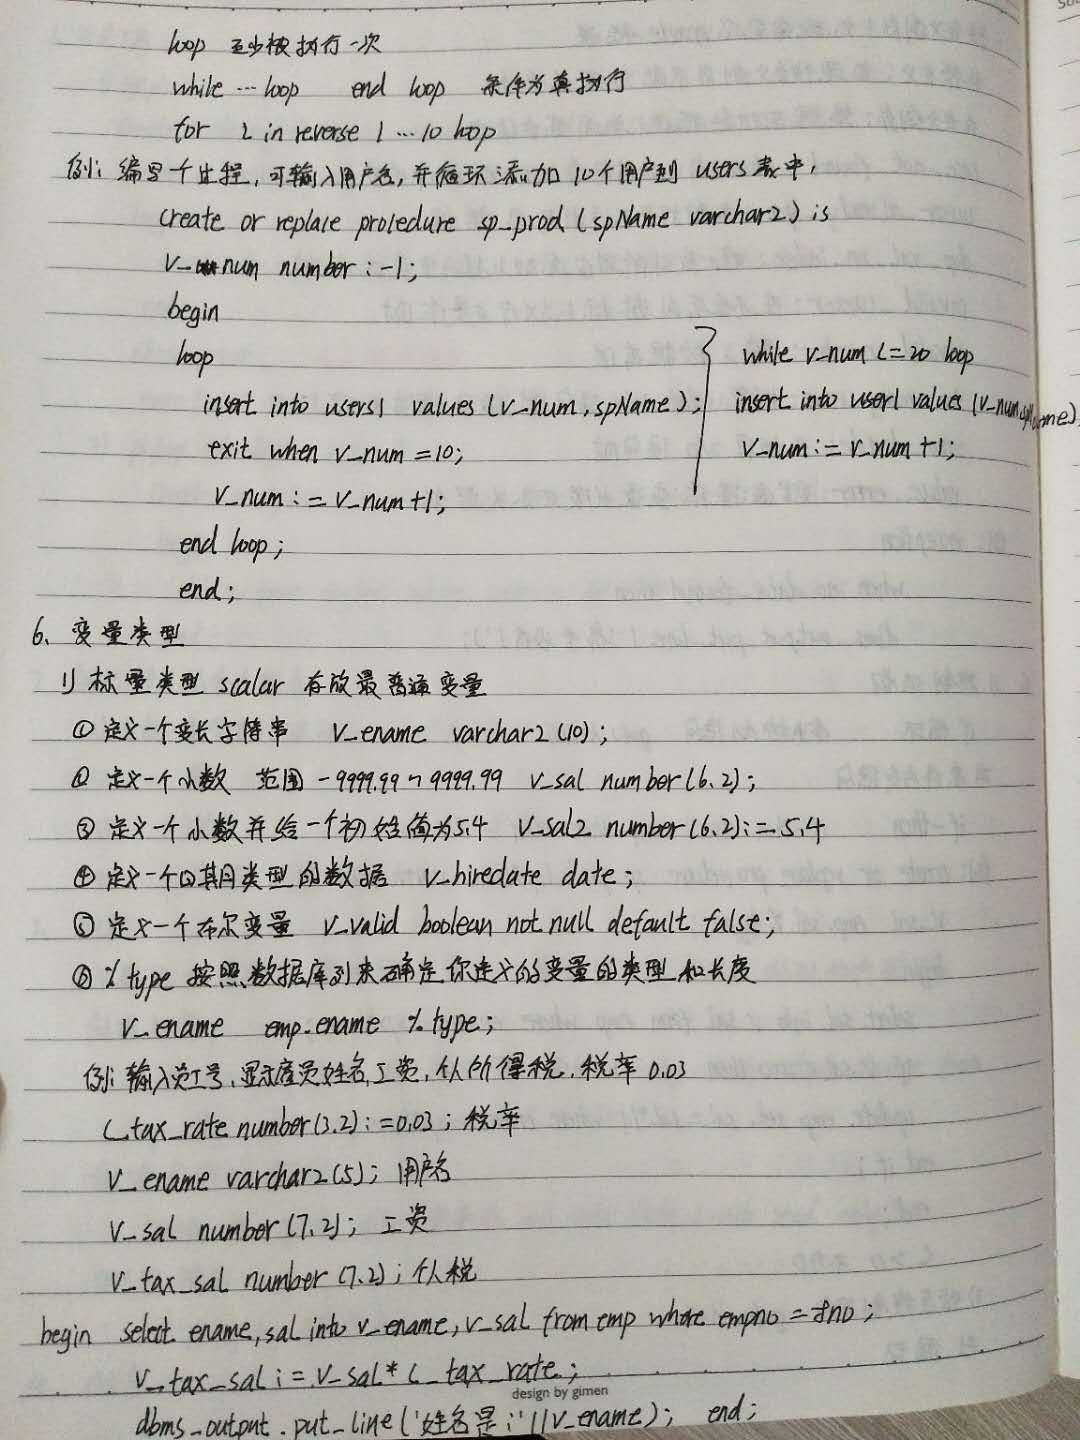 loop 至少被执行一次
while … loop end loop 条件为真执行
for i in reverse 1 … 10 loop
例: 编写一个过程, 可输入用户名, 并循环添加10个用户到 users 表中,
create or replace procedure sp_prod (spName varchar2) is
v_num number :=1;
begin
loop
insert into users1 values (v_num, spName);
exit when v_num =10;
v_num := v_num+1;
end loop;
end;
while v_num <=20 loop
insert into user1 values (v_num, spName);
v_num := v_num +1;
6、变量类型
1) 标量类型 scalar 存放最普通变量
① 定义一个变长字符串 v_ename varchar2 (10);
② 定义一个小数 范围 -9999.99~9999.99 v_sal number(6.2);
③ 定义一个小数并给一个初始值为5.4 v_sal2 number(6.2):=5.4
④ 定义一个日期类型的数据 v_hiredate date;
⑤ 定义一个布尔变量 v_valid boolean not null default false;
⑥ %type 按照数据库列来确定你定义的变量的类型和长度
v_ename emp.ename %type;
例: 输入员工号, 显示雇员姓名, 工资, 个人所得税. 税率 0.03
c_tax_rate number(3.2):=0.03; 税率
v_ename varchar2(5); 用户名
v_sal number(7.2); 工资
v_tax_sal number (7.2); 个税
begin select ename, sal into v_ename, v_sal from emp where empno = &no;
v_tax_sal := v_sal* c_tax_rate;
design by gimen
dbms_output.put_line('姓名是:'||v_ename); end;